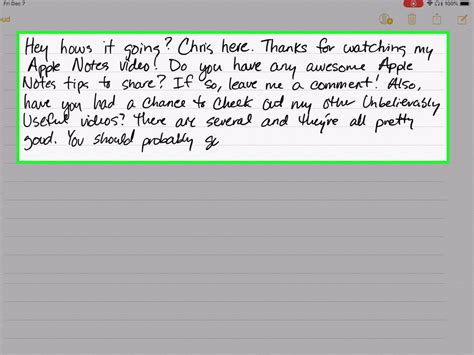 Fri Dec 7
100%
Hey hows it going? Chris here. Thanks for watching my
Apple Notes video! Do you have any awesome Apple
Notes tips to share? If so, leave me a comment! Also,
have you had a chance to check out my other Unbelievably
Useful videos? There are several and they're all pretty
good. You should probably g